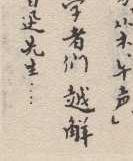 午声」
学者们越解
迅先生……